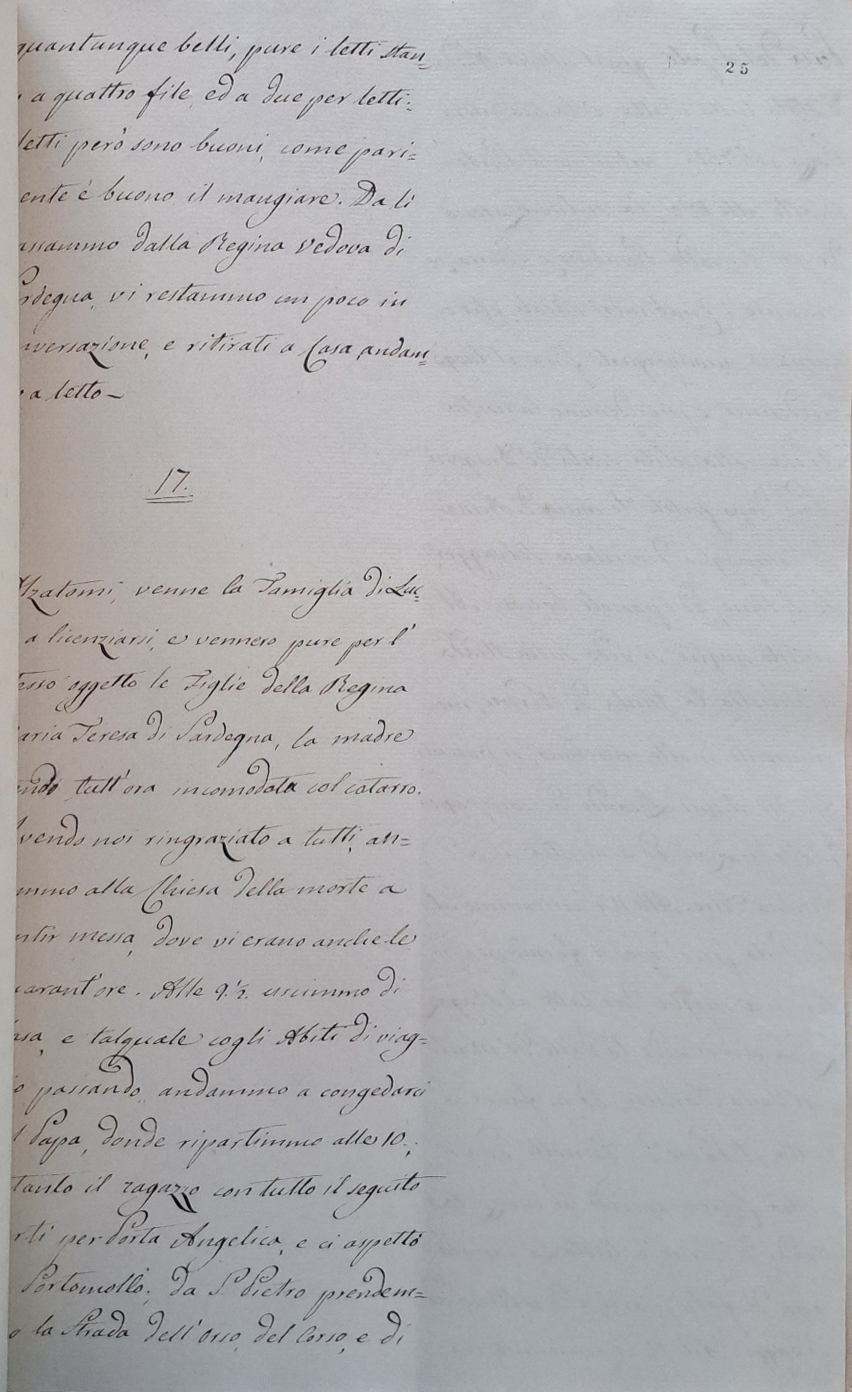 25
quantunque belli, pure i letti stan=
a quattro file, ed a due per letti.
letti però sono buoni, come pari=
ente è buono il mangiare. Da lì
assammo dalla Regina vedova di
rdegna, vi restammo un poco in
nversazione, e ritirati a Casa andam=
a letto—
17.
lzatomi, venne la Famiglia di Luc=
a licenziarsi, e vennero pure per l'
esso oggetto le Figlie della Regina
aria Teresa di Sardegna, la madre
endo tutt'ora incomodata col catarro.
vendo noi ringraziato a tutti, an=
mmo alla Chiesa della morte a
ntir messa, dove vi erano anche le
uarant'ore. Alle 9.½ uscimmo di
asa, e talquale cogli Abiti di viag=
o passando, andammo a congedarci
l Papa, donde ripartimmo alle 10.;
tanto il ragazzo con tutto il seguito
rti per Porta Angelica, e ci aspettò
Portomollo; da S. Pietro prendem=
o la Strada dell'Orso, del Corso, e di